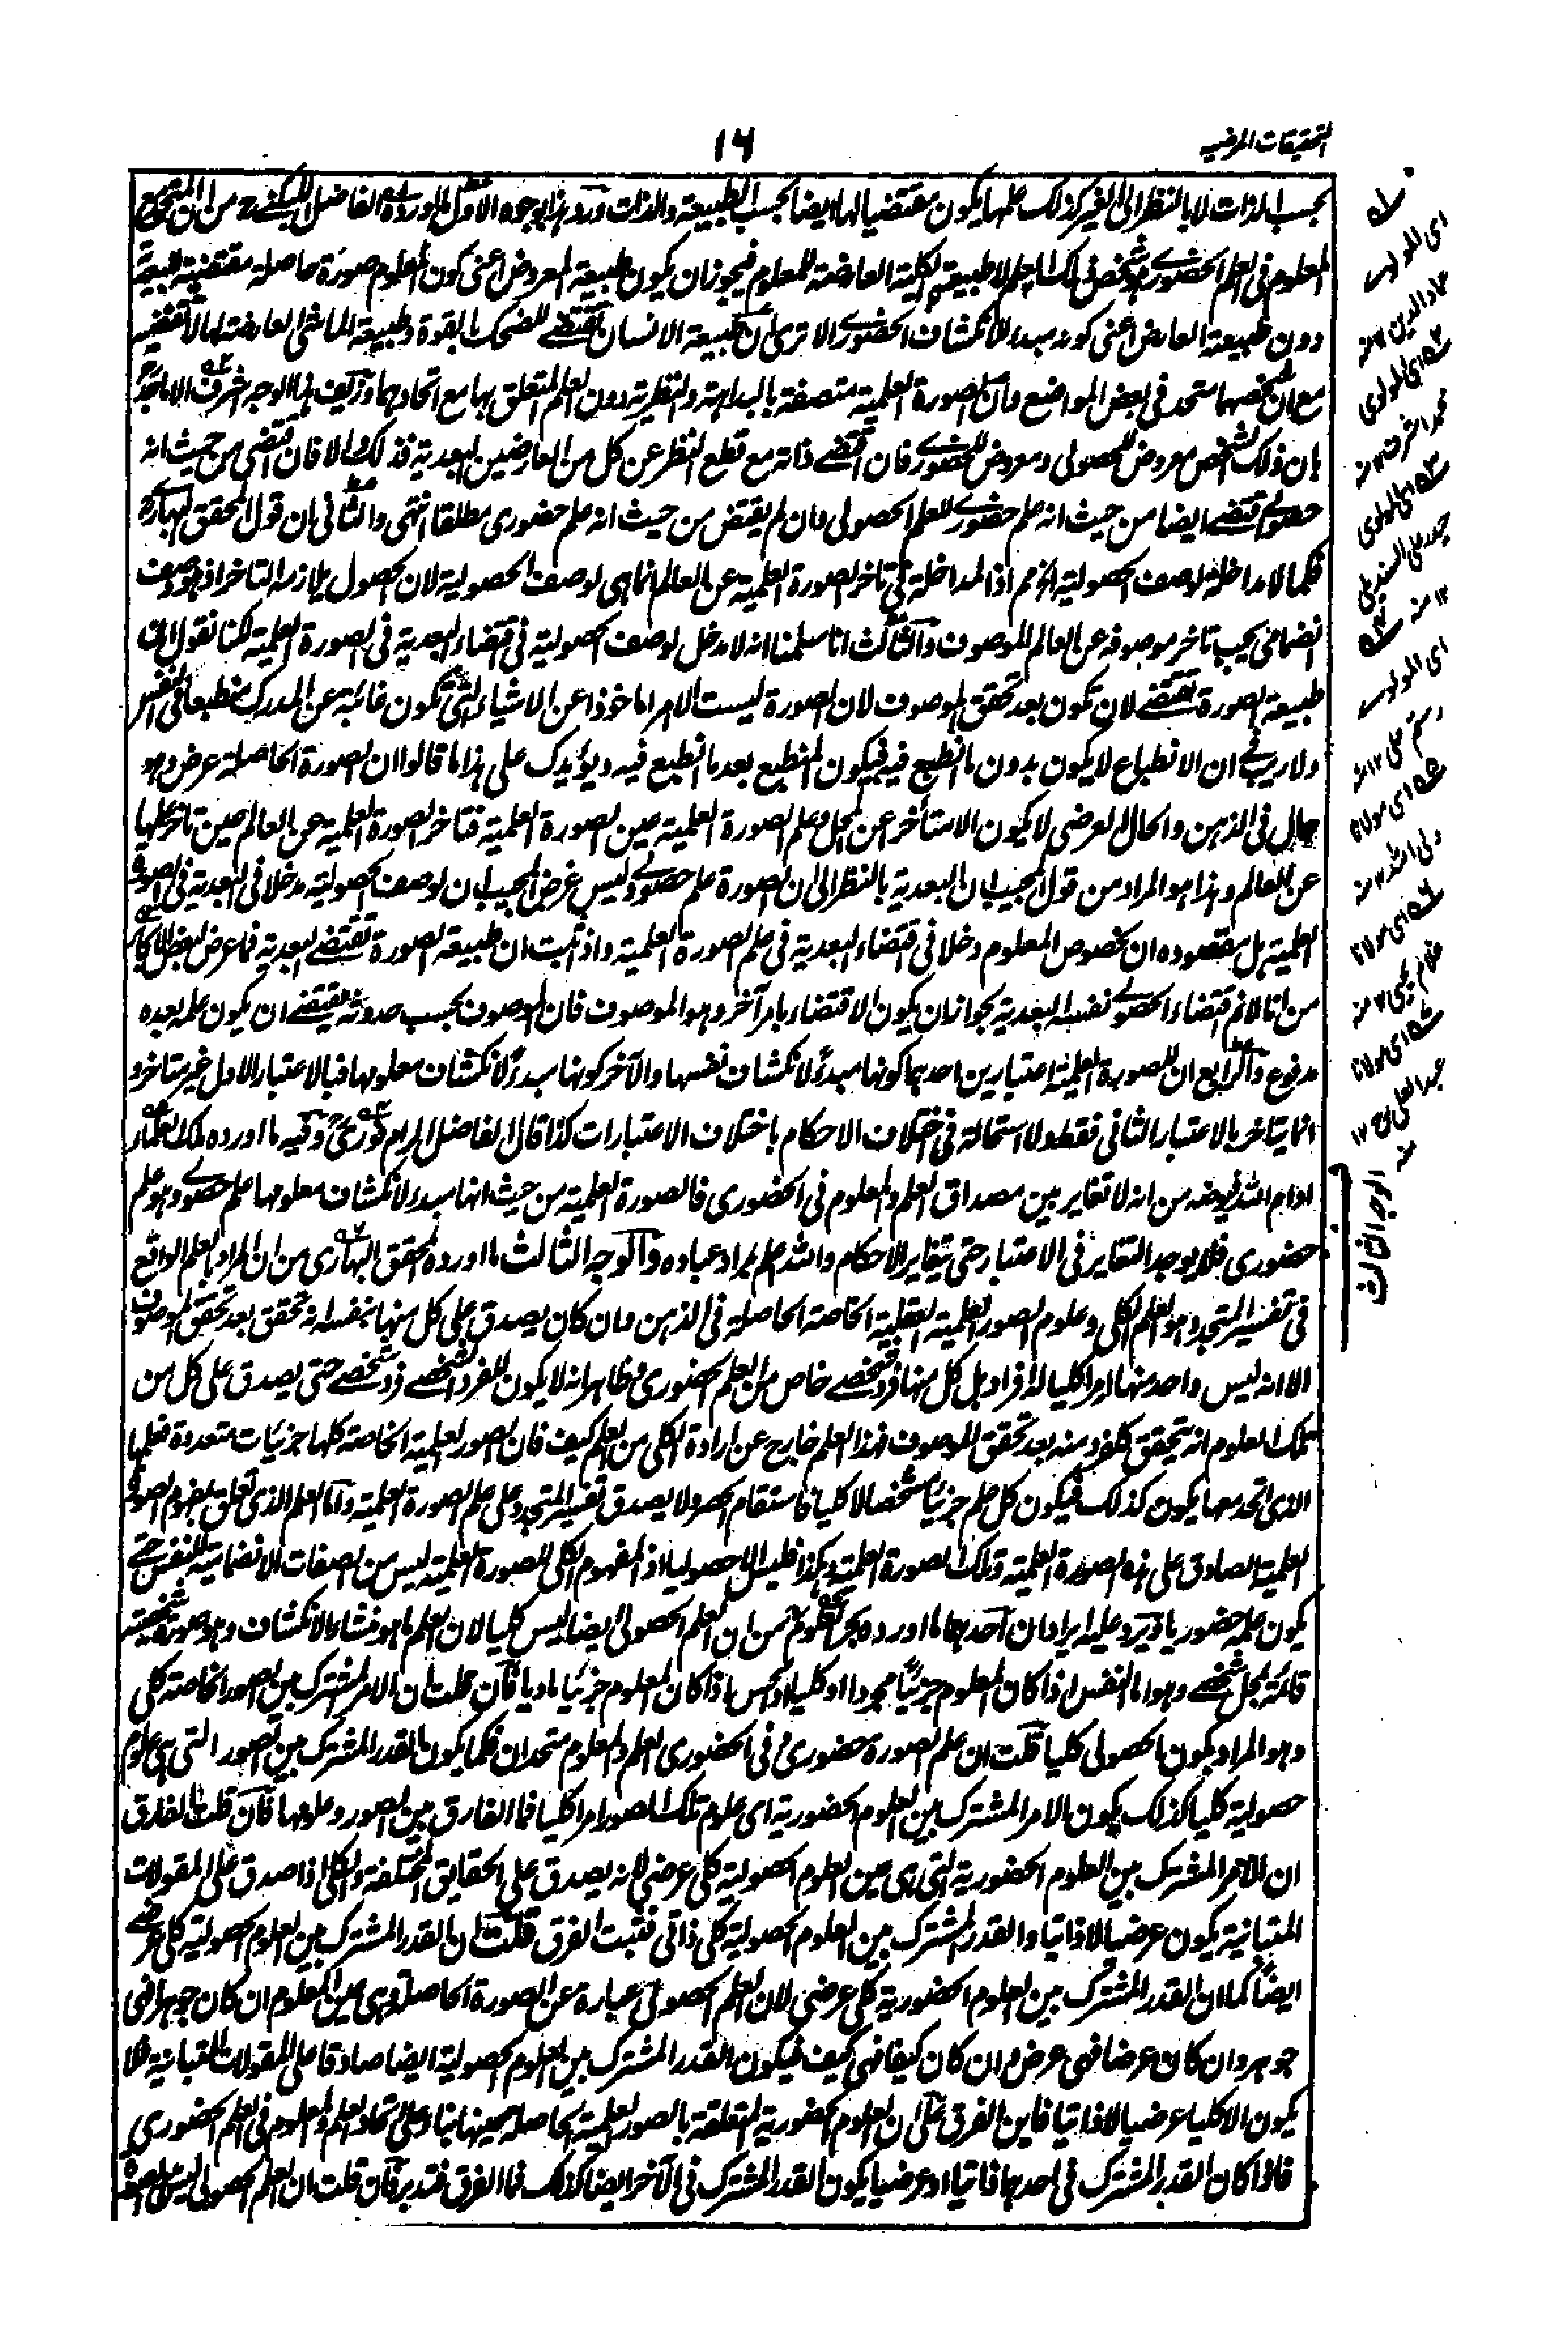 التحقيقات المرضية
١٦
بحسب الذات لا بالنظر الى الغير كذلك علمها يكون مقتضيا لها ايضا بحسب الطبيعة والذات ورد هذا بوجوه الاول ما اورده الفاضل من ان المتصح
المعلوم فى العلم الحضورى هو شخص ذلك العلم لا طبيعة الكلية العارضة للمعلوم فيجوز ان يكون طبيعة المعروض اعنى كون المعلوم صورة حاصلة مقتضية للبعدية
دون طبيعة العارض اعنى كونه مبدء لانكشاف الحضورى الا ترى ان طبيعة الانسان تقتضى الضحك بالقوة وطبيعة الماشى العارضة لها لا تقتضيه
مع ان شخصهما متحد فى بعض المواضع وان الصورة العلمية متصفة بالبداهة والنظرية دون العلم المتعلق بها مع اتحادهما وزيف هذا الوجه اشرف الاماجد
بان ذلك الشخص معروض للحصولى ومعروض للحضورى فان اقتضى ذاته مع قطع النظر عن كل من العارضين البعدية فذلك والا فان اقتضى من حيث انه
حصولى اقتضى ايضا من حيث انه علم حضورى للعلم الحصولى وان لم يقتض من حيث انه علم حضورى مطلقا انتهى والثانى ان قول المحقق البهارى
فكما لا مداخلة لوصف الحصولية الخ مم اذ المداخلة فى تاخر الصورة العلمية عن العالم انما هى لوصف الحصولية لان الحصول يلازمه التاخر اذ هو وصف
انضمامى يجب تاخر موصوفه عن العالم الموصوف والثالث انا سلمنا انه لا مدخل لوصف الحصولية فى اقتضاء البعدية فى الصورة العلمية لكنا نقول ان
طبيعة الصورة تقتضى لان تكون بعد تحقق الموصوف لان الصورة ليست الا امرا ماخوذا عن الاشياء التى تكون غائبة عن المدرك منطبعا فى النفس
ولا ريب فى ان الانطباع لا يكون بدون ما انطبع فيه فيكون المنطبع بعد ما انطبع فيه ويؤيدك على هذا ما قالوا ان الصورة الحاصلة عرض وهو
حال فى الذهن والحال العرضى لا يكون الا متأخرا عن المحل وعلم الصورة العلمية عين الصورة العلمية فتاخر الصورة العلمية عن العالم عين تاخر علمها
عن العالم وهذا هو المراد من قول المجيب ان البعدية بالنظر الى ان الصورة علم حصولى وليس غرض المجيب ان لوصف الحصولية مدخلا فى البعدية فى الصورة
العلمية بل مقصوده ان لخصوص المعلوم دخلا فى اقتضاء البعدية فى علم الصورة العلمية واذ ثبت ان طبيعة الصورة تقتضى البعدية فما عرض لبعض الاكابر
من انا لانم اقتضاء الحصولى نفسه البعدية بجواز ان يكون الاقتضاء بامر آخر وهو الموصوف فان الموصوف بحسب حدوثه يقتضى ان يكون علمه بعده
مدفوع والرابع ان للصورة العلمية اعتبارين احدهما كونها مبدءً لانكشاف نفسها والآخر كونها مبدءً لانكشاف معلومها فبالاعتبار الاول غير متاخر و
انما يتاخر بالاعتبار الثانى فقط ولا استحالة فى اختلاف الاحكام باختلاف الاعتبارات كذا قال الفاضل وفيه ما اورده ملك العلماء
ادام الله فيوضه من انه لا تغاير بين مصداق العلم والمعلوم فى الحضورى فالصورة العلمية من حيث انها مبدء لانكشاف معلومها علم حصولى وهو علم
حضورى فلا يوجد التغاير فى الاعتبار حتى يتغاير الاحكام والله اعلم بمراد عباده والوجه الثالث ما اورده المحقق البهارى من ان المراد بالعلم الواقع
فى تفسير المتجدد هو العلم الكلى وعلوم الصور العلمية العقلية الخاصة الحاصلة فى الذهن وان كان يصدق على كل منها بنفسه انه تحقق بعد تحقق الموصوف
الا انه ليس واحد منها امرا كليا له افراد بل كل منها فرد شخصى خاص من العلم الحضورى وظاهر انه لا يكون للفرد الشخصى فرد شخصى حتى يصدق على كل من
تلك العلوم انه يتحقق كل فرد منه بعد تحقق الموصوف فهذا العلم خارج عن ارادة الكلى من العلم كيف فان الصور العلمية الخاصة كلها جزئيات متعددة فعلمها
الذى اتحد معها يكون كذلك فيكون كل علم جزئيا مشخصا لا كليا فاستقام الحصر ولا يصدق تفسير المتجدد على علم الصورة العلمية واما العلم الذى تعلق بمفهوم الصورة
العلمية الصادق على هذه الصورة العلمية وتلك الصورة العلمية وهكذا فليس الا حصوليا اذ المفهوم الكلى للصورة العلمية ليس من الصفات الانضمامية للنفس حتى
يكون علمه حضوريا ويرد عليه ايرادان احدهما ما اورده بحر العلوم من ان العلم الحصولى ايضا ليس كليا لان العلم ما هو منشاء الانكشاف وهو صورة شخصية
قائمة بمحل شخصى وهو اما النفس اذا كان المعلوم جزئياً مجردا او كليا او الحس اذا كان المعلوم جزئيا ماديا فان قلت ان الامر المشترك بين الصور الخاصة كلى
وهو المراد بكون الحصولى كليا قلت ان علم الصورة حضورى وفى الحضورى العلم والمعلوم متحدان فكما يكون القدر المشترك بين الصور التى هى علوم
حصولية كليا كذلك يكون الامر المشترك بين العلوم الحضورية اى علوم تلك الصور امرا كليا فما الفارق بين الصور وعلومها فان قلت الفارق
ان الامر المشترك بين العلوم الحضورية التى هى عين العلوم الحصولية كلى عرضى لانه يصدق على الحقايق المختلفة والكلى اذا صدق على المقولات
المتباينة يكون عرضيا لا ذاتيا والقدر المشترك بين العلوم الحصولية كلى ذاتى فثبت الفرق قلت ان القدر المشترك بين العلوم الحصولية كلى عرضى
ايضاً كما ان القدر المشترك بين العلوم الحضورية كلى عرضى لان العلم الحصولى عبارة عن الصورة الحاصلة وهى عين المعلوم ان كان جوهرا فهى
جوهر وان كان عرضا فهى عرض وان كان كيفا فهى كيف فيكون القدر المشترك بين العلوم الحصولية ايضا صادقا على المقولات المتباينة فلا
يكون الا كليا عرضيا لا ذاتيا فاين الفرق على ان العلوم الحضورية المتعلقة بالصور العلمية الحاصلة عينها بناء على اتحاد العلم والمعلوم فى العلم الحضورى
فاذا كان القدر المشترك فى احدهما ذاتيا او عرضيا يكون القدر المشترك فى الآخر ايضا كذلك فما الفرق فتدبر فان قلت ان العلم الحصولى ليس
اى المولوى
عماد الدين ١٢ منه
اى المولوى
محمد اشرف ١٢ منه
اى المولوى
حمد على السنديلى
١٢ منه
اى المولوى
رستم على ١٢ منه
اى مولانا
ولى الله ١٢ منه
اى مولانا
غلام يحيى ١٢ منه
اى مولانا
عبد العلى ١٢
منه
الوجه الثالث